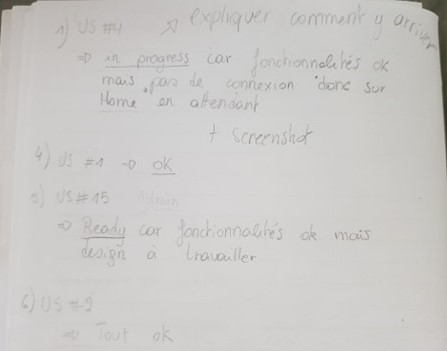 1) US #4 ⇒ expliquer comment y arriver
⇒ in progress car fonctionnalités ok
mais pas de connexion donc sur
Home en attendant
+ Screenshot
4) US #1 → ok
5) US #15
⇒ Ready car fonctionnalités ok mais
design à travailler
6) US #2
⇒ Tout ok